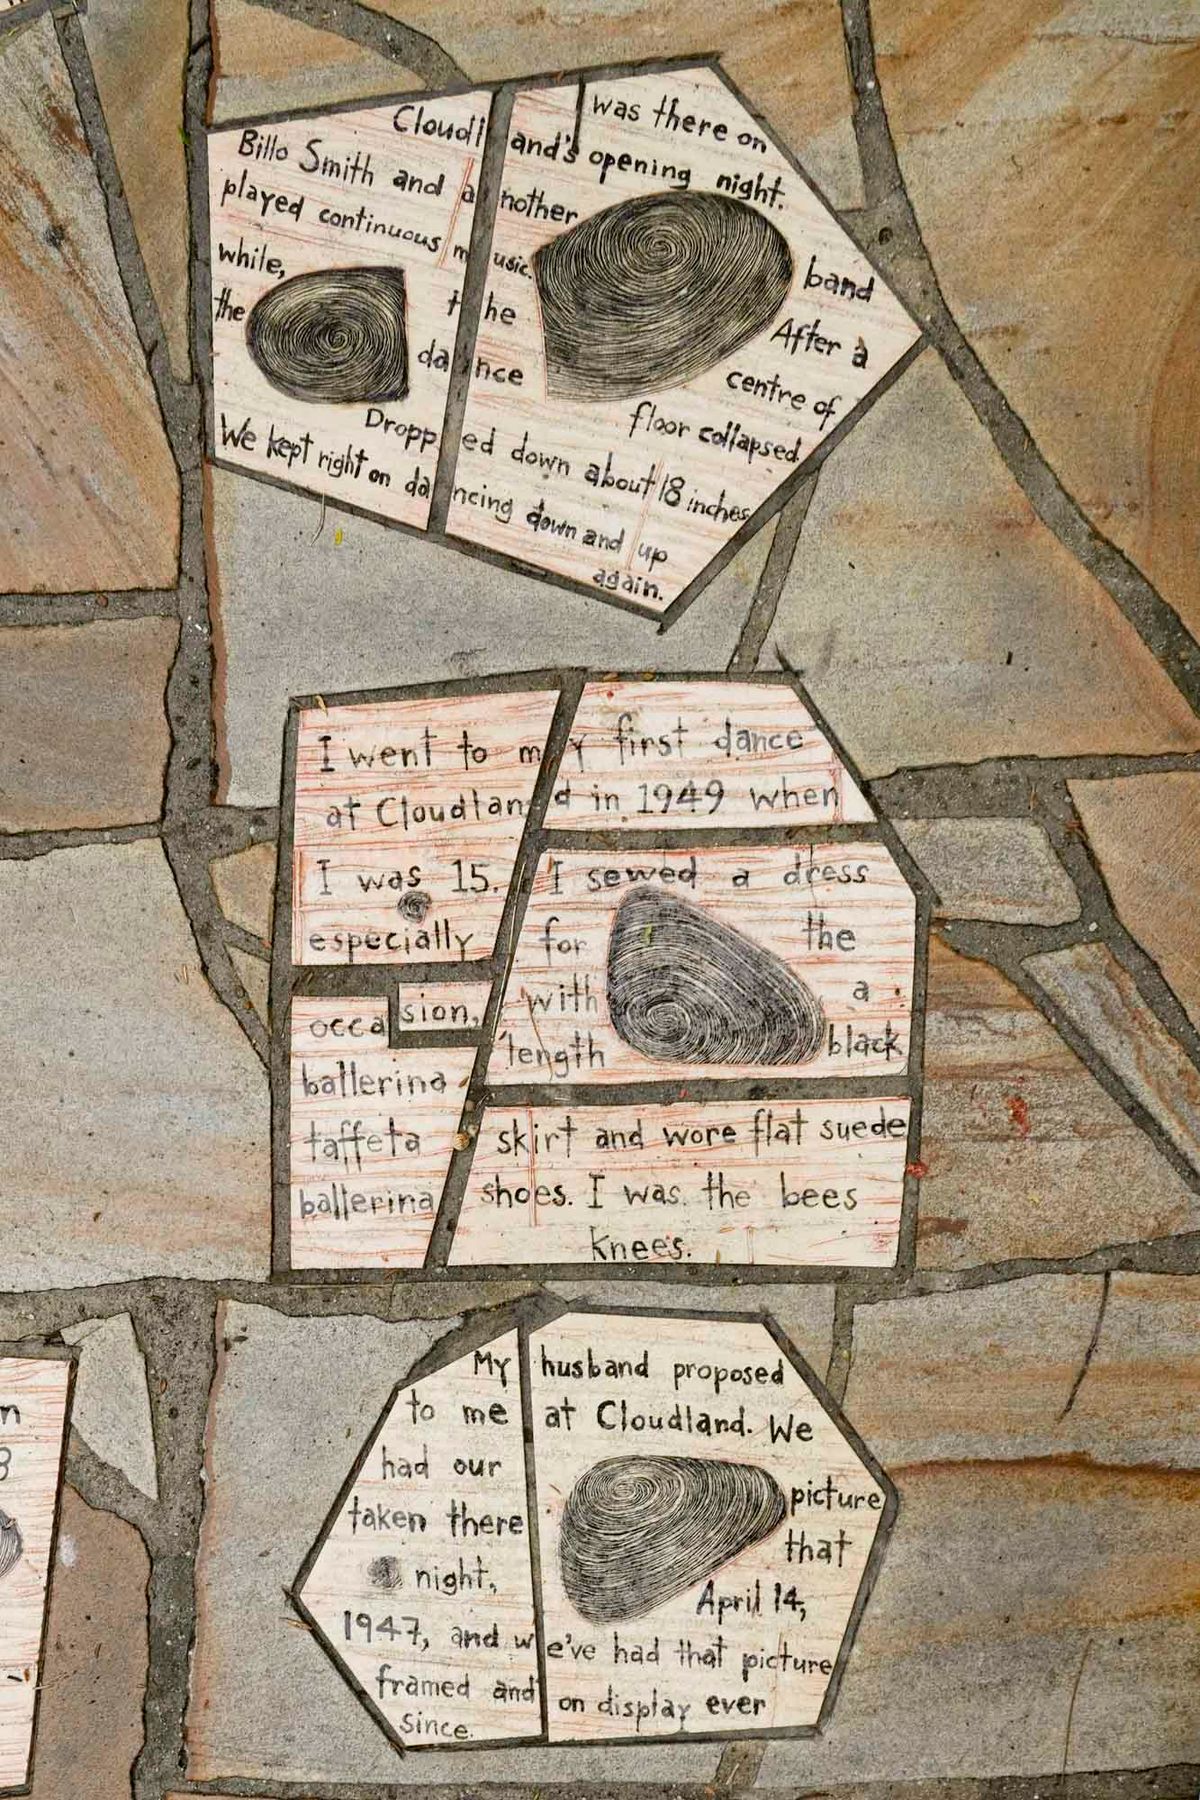 I was there on
Cloudland's opening night.
Billo Smith and another band
played continuous music. After a
while, the centre of
the dance floor collapsed.
Dropped down about 18 inches
We kept right on dancing down and up
again.
I went to my first dance
at Cloudland in 1949 when
I was 15. I sewed a dress
especially for the
occasion, with a
ballerina length black
taffeta skirt and wore flat suede
ballerina shoes. I was the bees
knees.
My husband proposed
to me at Cloudland. We
had our picture
taken there that
night, April 14,
1947, and we've had that picture
framed and on display ever
since.